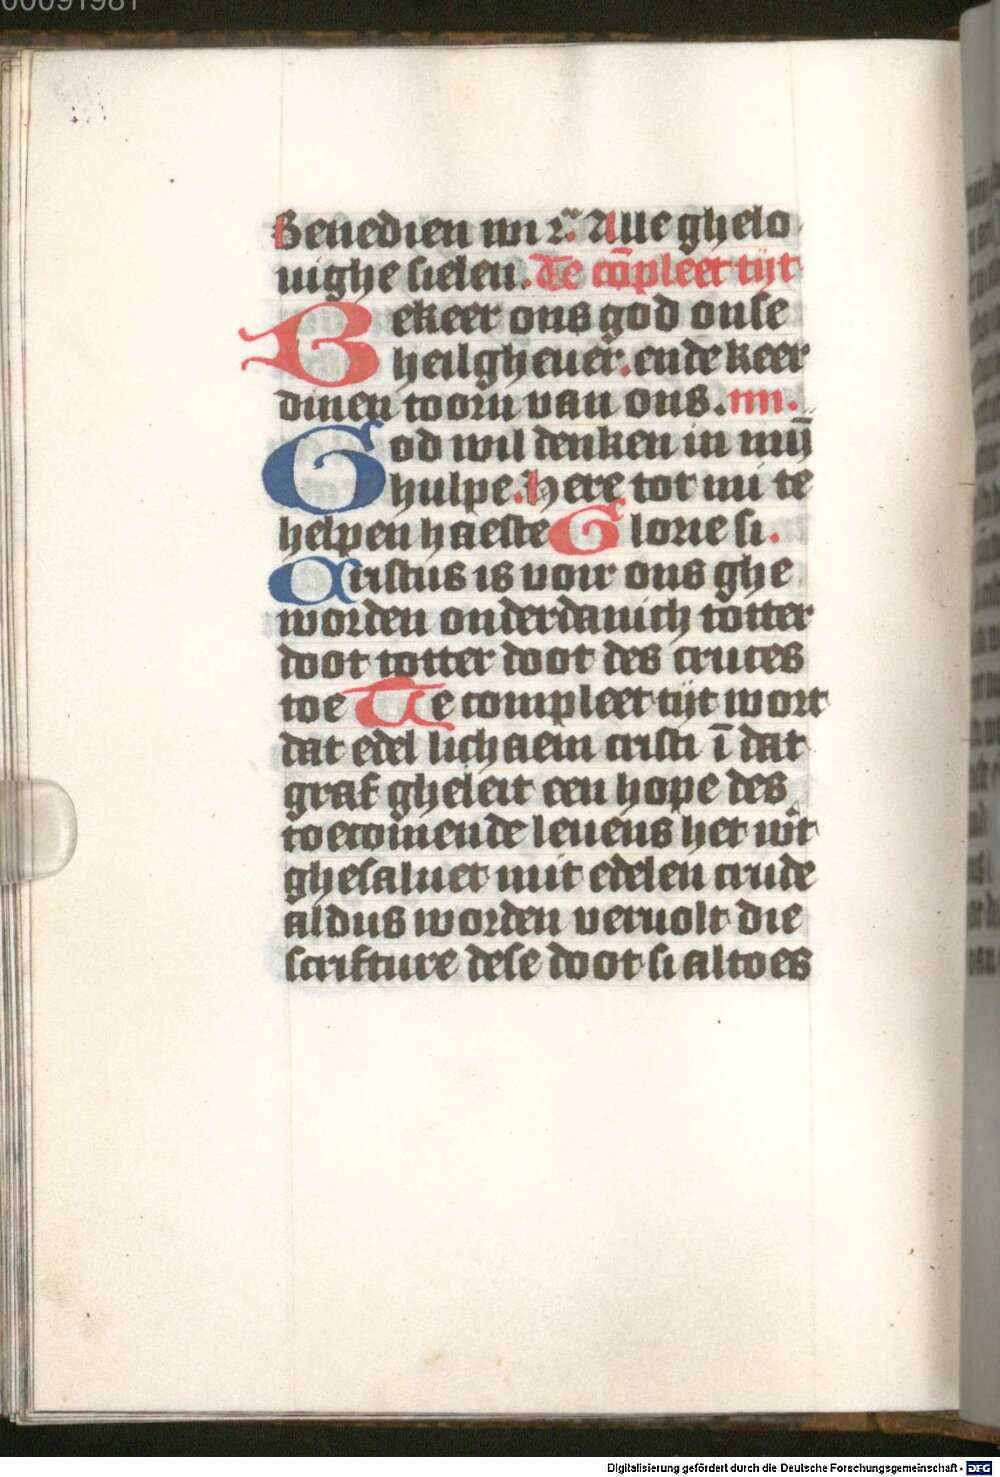 00091981
Benedien wi ꝛc. Alle ghelo
uighe sielen. Te cōpleet tijt
Bekeer ons god onse
heilgheuer. ende keer
dinen toorn van ons. nn.
God wil denken in mijn̄
hulpe. here tot mi te
helpen haeste Glorie si.
Cristus is voir ons ghe
worden onderdanich totter
doot totter doot des cruces
toe Te compleet tijt wort
dat edel lichaem cristi ī dat
graf gheleit een hope des
toecomende leuens het wͥt
ghesaluet mit edelen crude
aldus worden veruolt die
scrifture dese doot si altoes
Digitalisierung gefördert durch die Deutsche Forschungsgemeinschaft - DFG